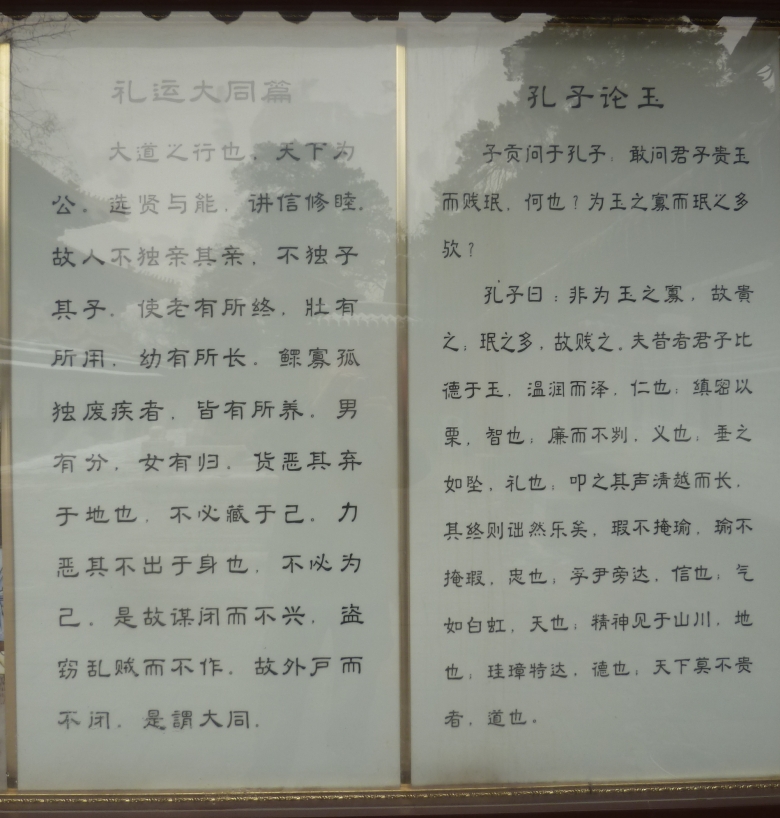 礼运大同篇
大道之行也，天下为
公。选贤与能，讲信修睦，
故人不独亲其亲，不独子
其子，使老有所终，壮有
所用，幼有所长，鳏寡孤
独废疾者，皆有所养，男
有分，女有归，货恶其弃
于地也，不必藏于己。力
恶其不出于身也，不必为
己，是故谋闭而不兴，盗
窃乱贼而不作，故外户而
不闭，是謂大同。
孔子论玉
子贡问于孔子：敢问君子贵玉
而贱珉，何也？为玉之寡而珉之多
欤？
孔子曰：非为玉之寡，故貴
之；珉之多，故贱之。夫昔者君子比
德于玉，温润而泽，仁也；缜密以
栗，智也；廉而不刿，义也；垂之
如坠，礼也；叩之其声清越而长，
其终则诎然乐矣，瑕不掩瑜，瑜不
掩瑕，忠也；孚尹旁达，信也；气
如白虹，天也；精神见于山川，地
也；珪璋特达，德也；天下莫不贵
者，道也。